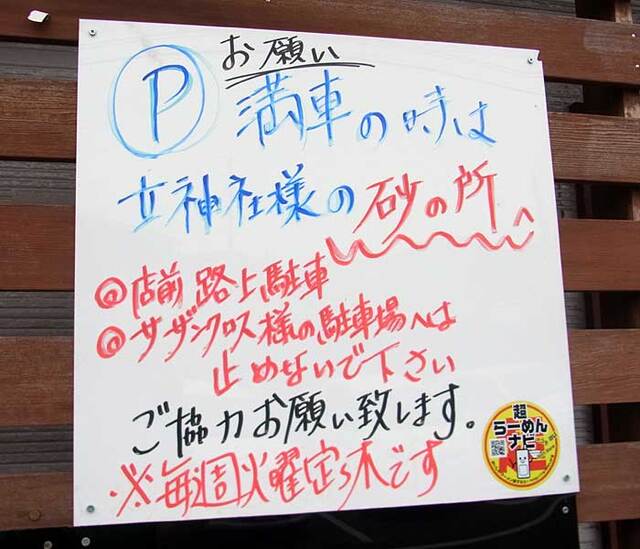 お願い
P 満車の時は
立神社様の砂の所
@店前路上駐車
@サザンクロス様の駐車場へは
止めないで下さい
ご協力お願い致します。
※毎週火曜定休です
超
らーめん
ナビ